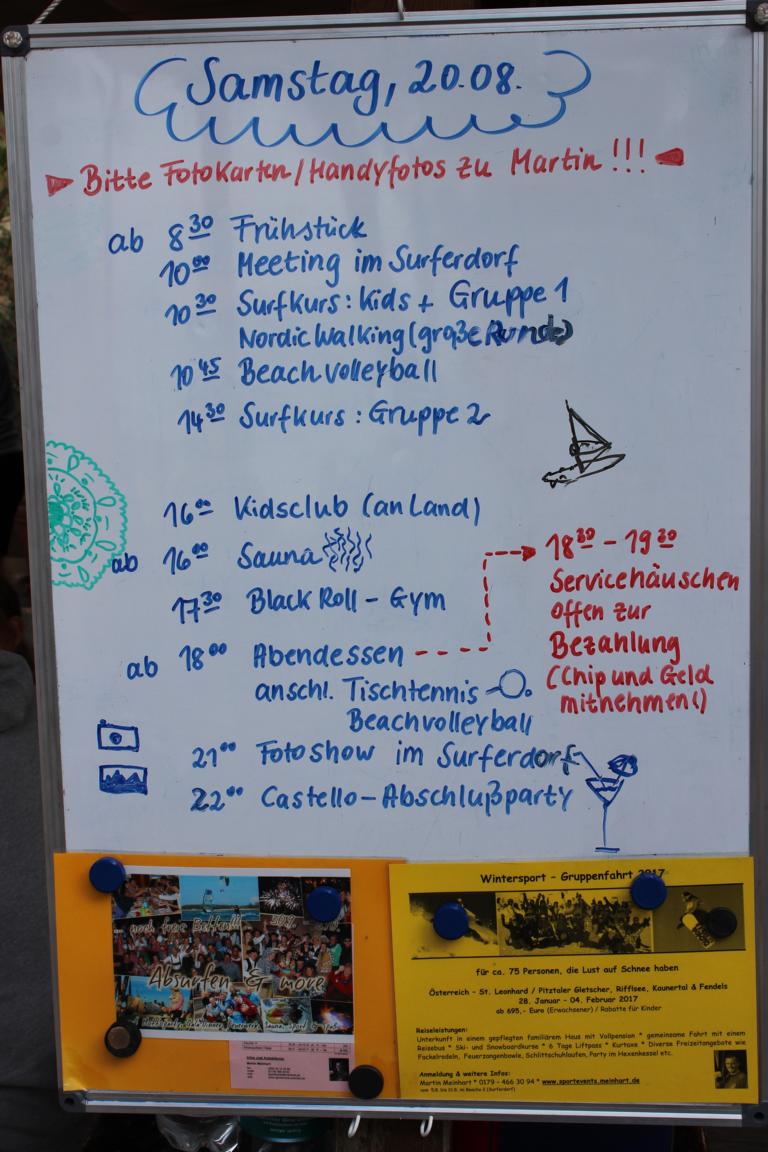 Samstag, 20.08.
Bitte Fotokarten/Handyfotos zu Martin!!!
ab 8 30 Frühstück
10 00 Meeting im Surferdorf
10 30 Surfkurs: Kids + Gruppe 1
Nordic Walking (große Runde)
10 45 Beachvolleyball
14 30 Surfkurs: Gruppe 2
16 00 Kidsclub (an Land)
ab 16 00 Sauna
17 30 Black Roll - Gym
ab 18 00 Abendessen
anschl. Tischtennis
Beachvolleyball
21 00 Fotoshow im Surferdorf
22 00 Castello-Abschlußparty
18 30 - 19 30
Servicehäuschen
offen zur
Bezahlung
(Chip und Geld
mitnehmen!)
noch freie Betten!!!
Absurfen & more
Wintersport - Gruppenfahrt 2017
für ca. 75 Personen, die Lust auf Schnee haben
Österreich - St. Leonhard / Pitztaler Gletscher, Rifflsee, Kaunertal & Fendels
28. Januar - 04. Februar 2017
ab 695,- Euro (Erwachsener) / Rabatte für Kinder
Reiseleistungen:
Unterkunft in einem gepflegten familiärem Haus mit Vollpension * gemeinsame Fahrt mit einem
Reisebus * Ski- und Snowboardkurse * 6 Tage Liftpass * Kurtaxe * Diverse Freizeitangebote wie
Fackelrodeln, Feuerzangenbowle, Schlittschuhlaufen, Party im Hexenkessel etc.
Anmeldung & weitere Infos:
Martin Meinhart * 0179 - 466 30 94 * www.sportevents.meinhart.de